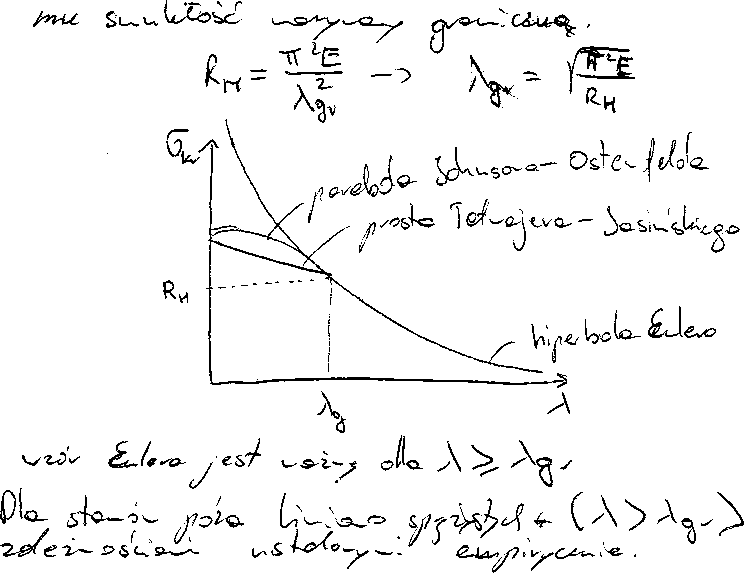 mu smukłość nazywamy graniczną.
R_H = π²E / λ_gr² → λ_gr = √(π²E / R_H)
σ_kr
parabola Johnsona-Ostenfelda
prosta Tetmajera-Jasińskiego
R_H
hiperbola Eulera
λ_g
λ
wzór Eulera jest ważny dla λ ≥ λ_gr
Dla stanów poza liniowo sprężystych (λ > λ_gr)
zależnościami ustalonymi empirycznie.